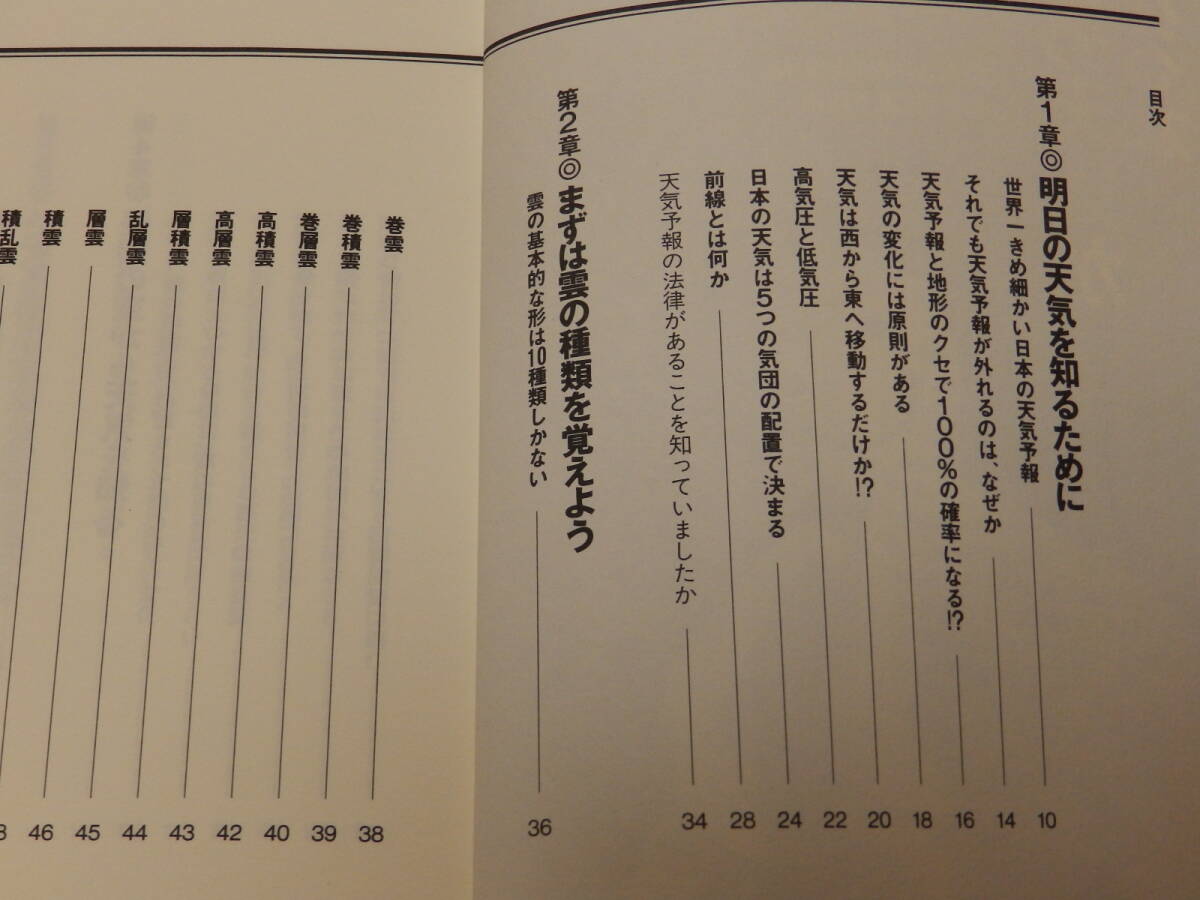 目次
第1章◎明日の天気を知るために
世界一きめ細かい日本の天気予報 10
それでも天気予報が外れるのは、なぜか 14
天気予報と地形のクセで100%の確率になる!? 16
天気の変化には原則がある 18
天気は西から東へ移動するだけか!? 20
高気圧と低気圧 22
日本の天気は5つの気団の配置で決まる 24
前線とは何か 28
天気予報の法律があることを知っていましたか 34
第2章◎まずは雲の種類を覚えよう
雲の基本的な形は10種類しかない 36
巻雲 38
巻積雲 39
巻層雲 40
高積雲 40
高層雲 42
層積雲 43
乱層雲 44
層雲 45
積雲 46
積乱雲